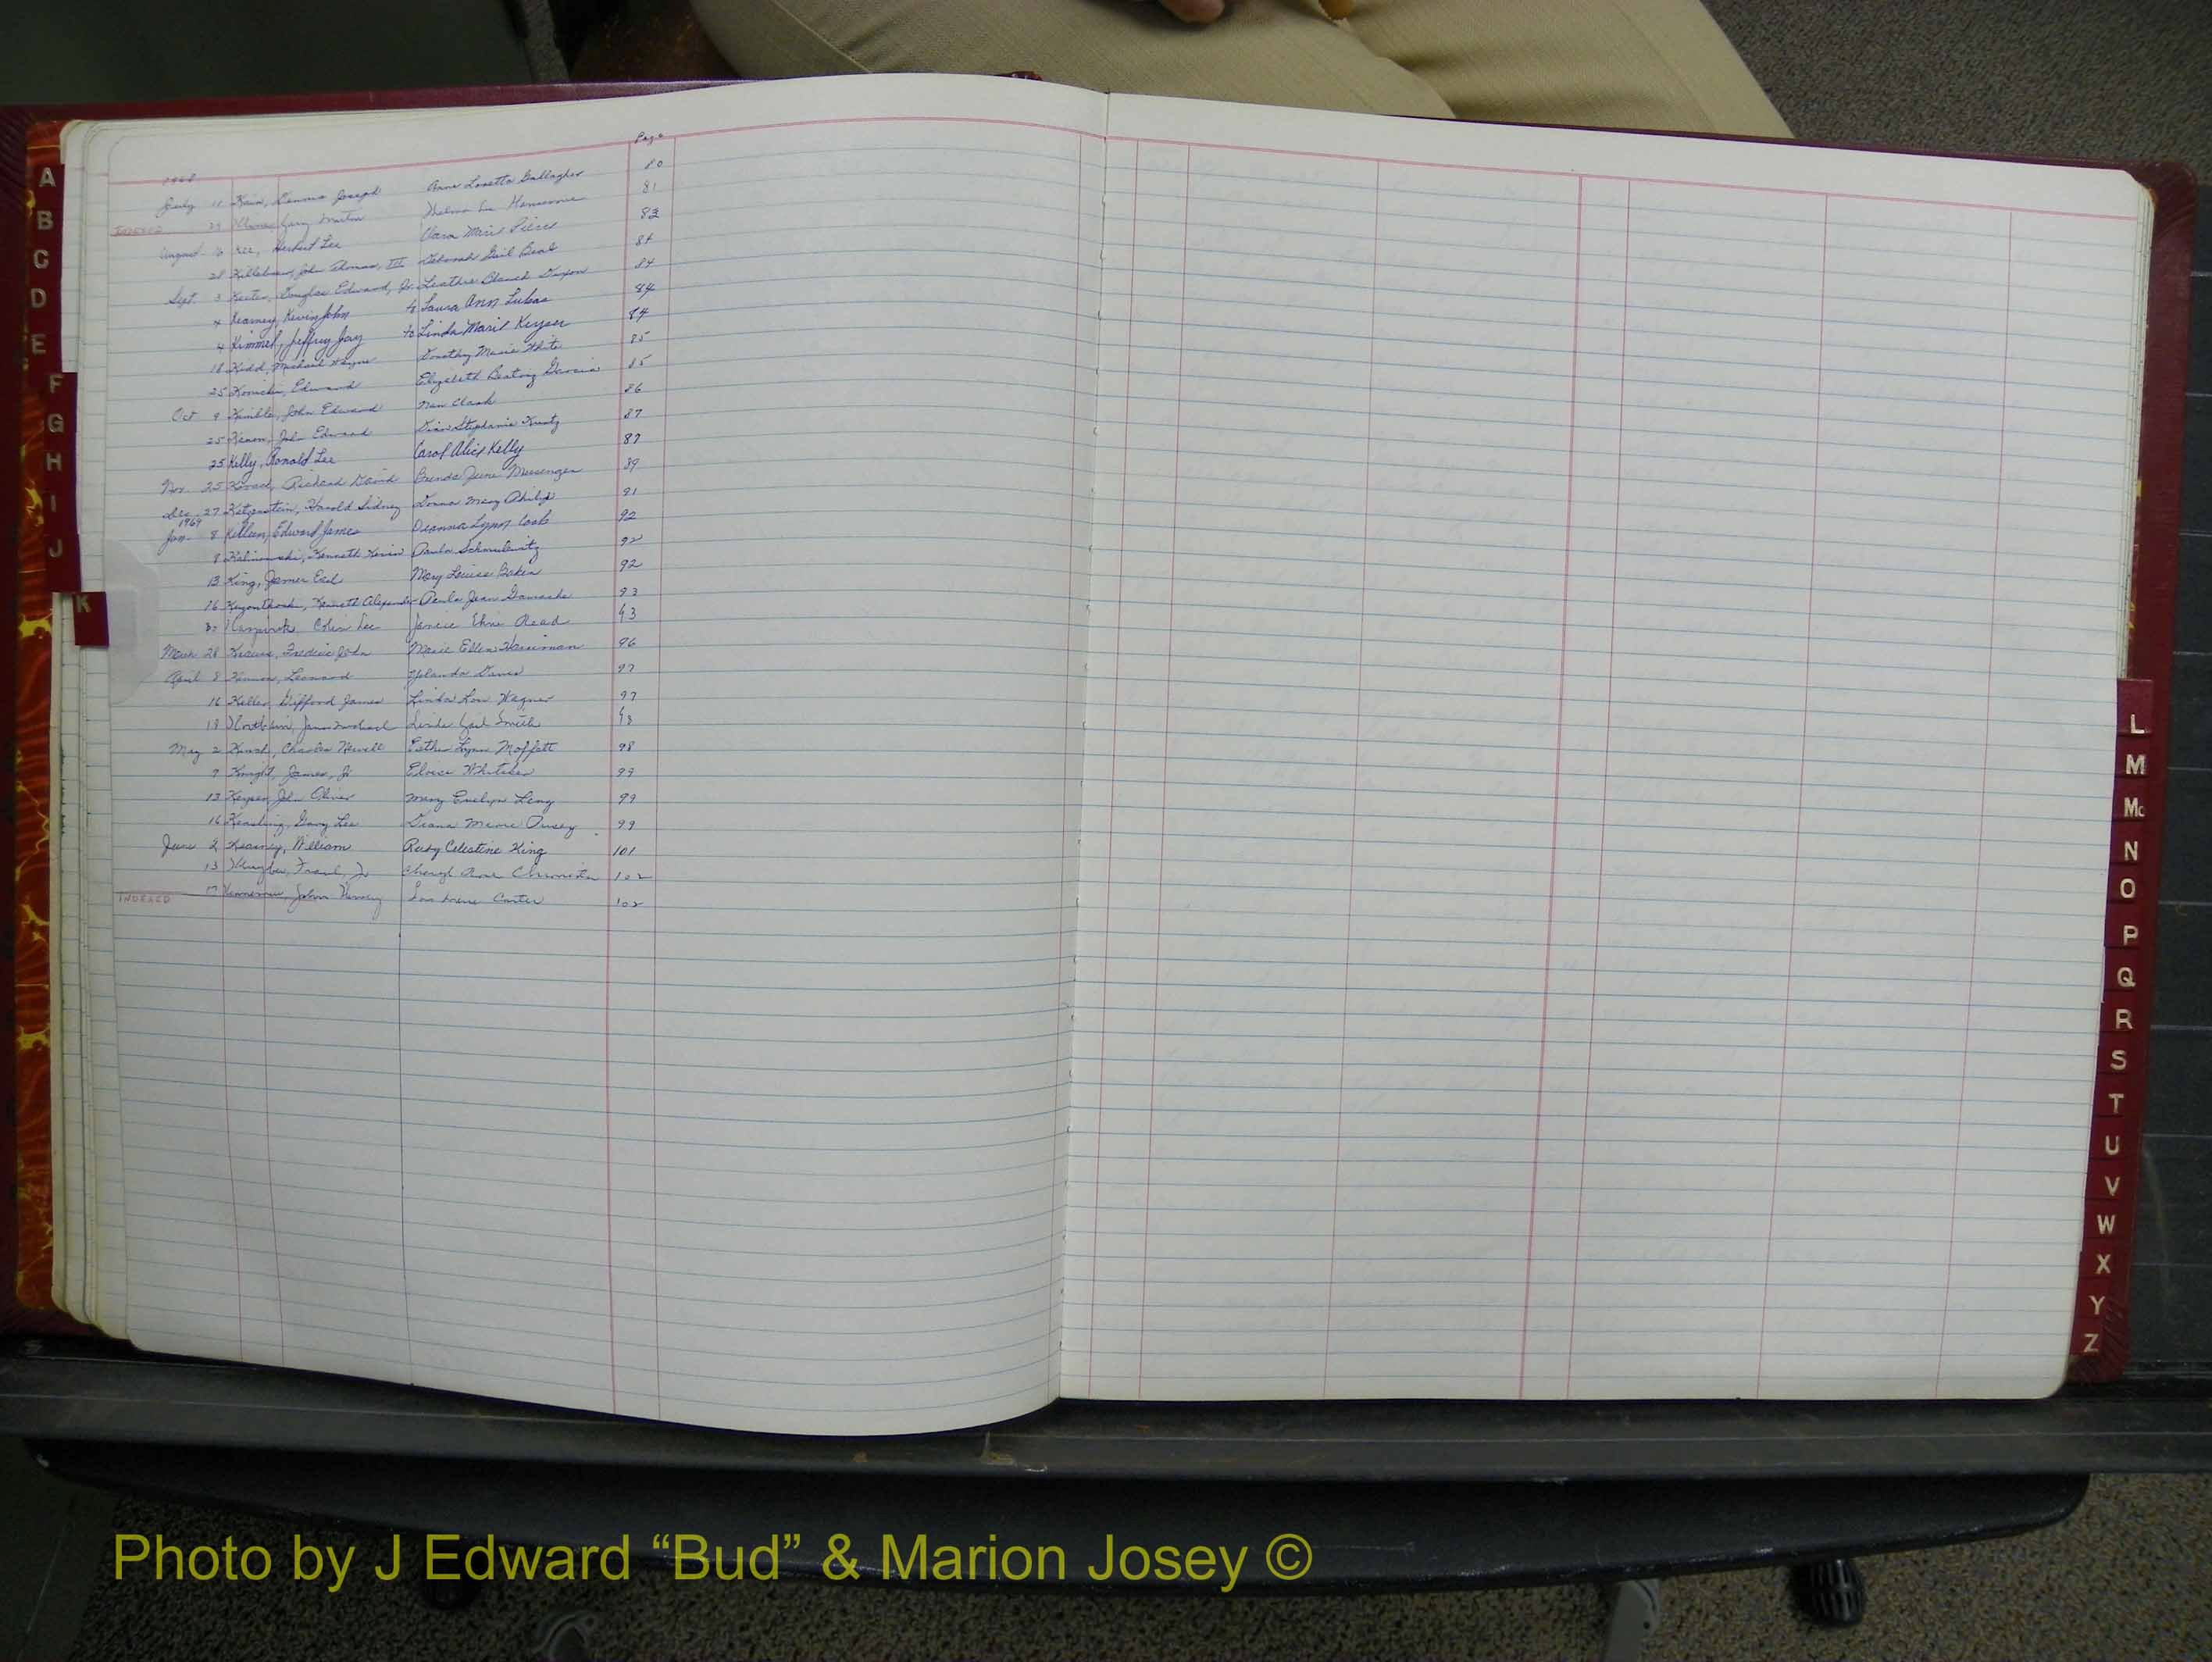 Page
1968
July 11 Kain, Dennis Joseph Anna Loretta Gallagher 80
INDEXED 29 Gary Martin Thelma Lee 81
August 16 Kee, Herbert Lee Clara Marie Pierce 83
28 Killebrew, John Thomas, III Deborah Gail Beal 84
Sept. 3 Douglas Edward, Jr. Blanch Dixon 84
4 Kearney, Kevin John to Laura Ann Lukas 84
4 Kimmel, Jeffrey Jay to Linda Marie Keyser 84
18 Kidd, Michael Wayne Dorothy Marie White 85
25 Edward Elizabeth Beatriz Garcia 85
Oct 9 Kimble, John Edward Nan Clark 86
25 John Edward Stephanie 87
25 Kelly, Ronald Lee Carol Alice Kelly 87
Nov. 25 Richard David Brenda June Messenger 89
Dec. 27 Katzenstein, Harold Sidney Donna Mary Philip 91
1969
Jan. 8 Killeen, Edward James Deanna Lynn Cook 92
8 Kalinowski, Kenneth Kevin Paula 92
13 King, James Earl Mary Louise Baker 92
16 Kenneth Alexander Paula Jean 93
30 Colin Lee Jancie Read 93
March 28 Krause, Frederic John Marie Ellen Harriman 96
April 8 Leonard Yolanda Davis 97
16 Keller, Clifford James Linda Lou Wagner 97
18 James Michael Linda Gail Smith 98
May 2 Charles Newell Esther Lynn Moffett 98
9 Knight, James, Jr Eloise Whitaker 99
13 Keyser, John Oliver Mary Evelyn Leny 99
16 Keasling, Gary Lee Diana Marie Pusey 99
June 2 Kearney, William Ruby Celestine King 101
13 Frank, Jr Cheryl Anne Chronister 102
INDEXED 17 John Lois Irene Carter 102
A
B
C
D
E
F
G
H
I
J
K
L
M
Mc
N
O
P
Q
R
S
T
U
V
W
X
Y
Z
Photo by J Edward “Bud” & Marion Josey ©